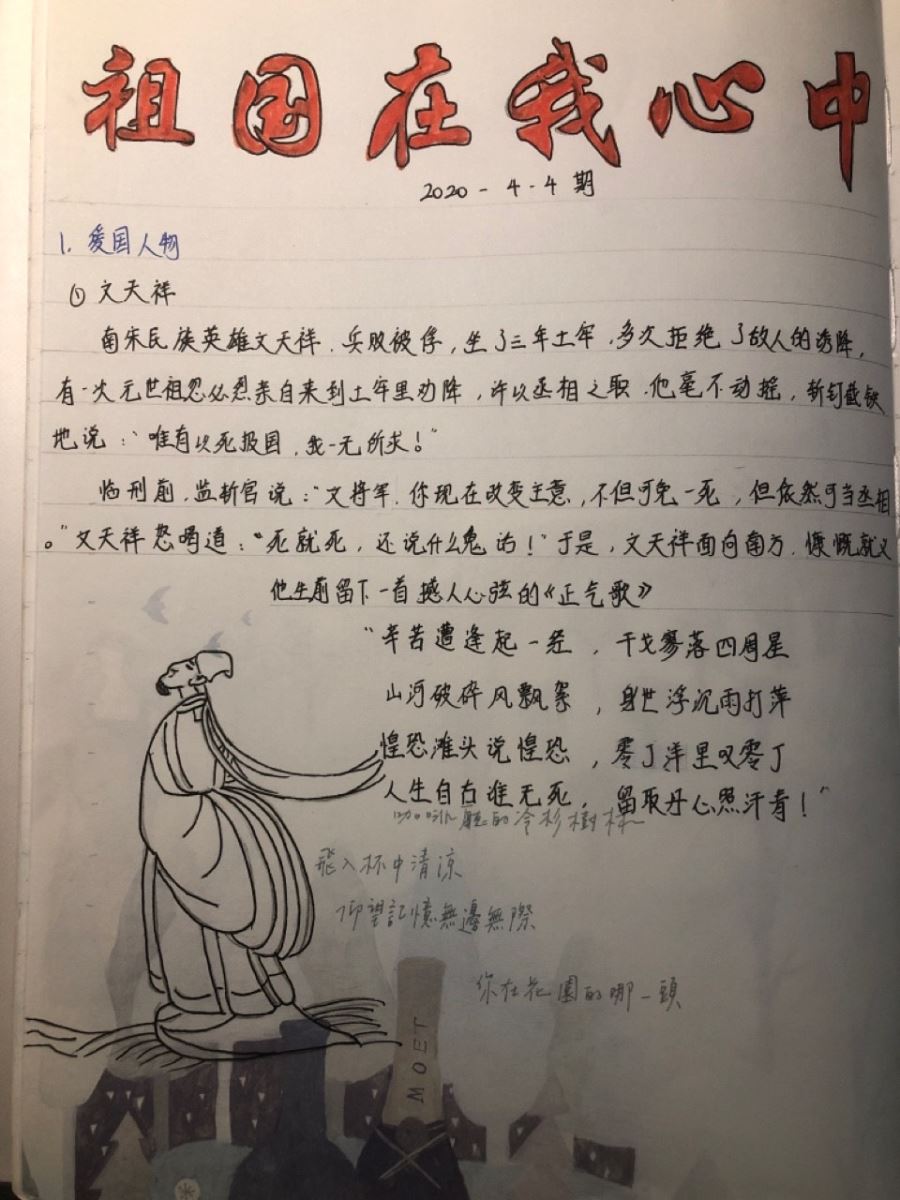 祖国在我心中
2020-4-4期
1. 爱国人物
① 文天祥
南宋民族英雄文天祥.兵败被俘,坐了三年土牢,多次拒绝了敌人的诱降,
有一次元世祖忽必烈亲自来到土牢里劝降,许以丞相之职.他毫不动摇,斩钉截铁
地说:"唯有以死报国,我一无所求!"
临刑前,监斩官说:"文将军.你现在改变主意,不但可免一死,但依然可当丞相
。"文天祥怒喝道:"死就死,还说什么鬼话!"于是,文天祥面向南方.慷慨就义
他生前留下一首撼人心弦的《正气歌》
"辛苦遭逢起一经,干戈寥落四周星
山河破碎风飘絮,身世浮沉雨打萍
惶恐滩头说惶恐,零丁洋里叹零丁
人生自古谁无死,留取丹心照汗青!"
咖啡廳的冷杉樹林
飛入杯中清涼
仰望記憶無邊無際
你在花園的哪一頭
MOET